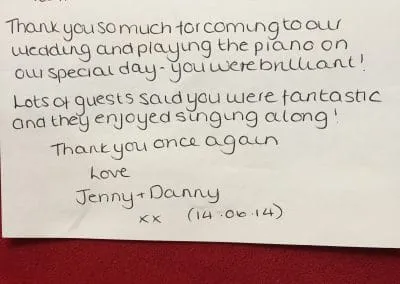 Thank you so much for coming to our
wedding and playing the piano on
our special day - you were brilliant!
Lots of guests said you were fantastic
and they enjoyed singing along!
Thank you once again
Love
Jenny + Danny
xx (14.06.14)